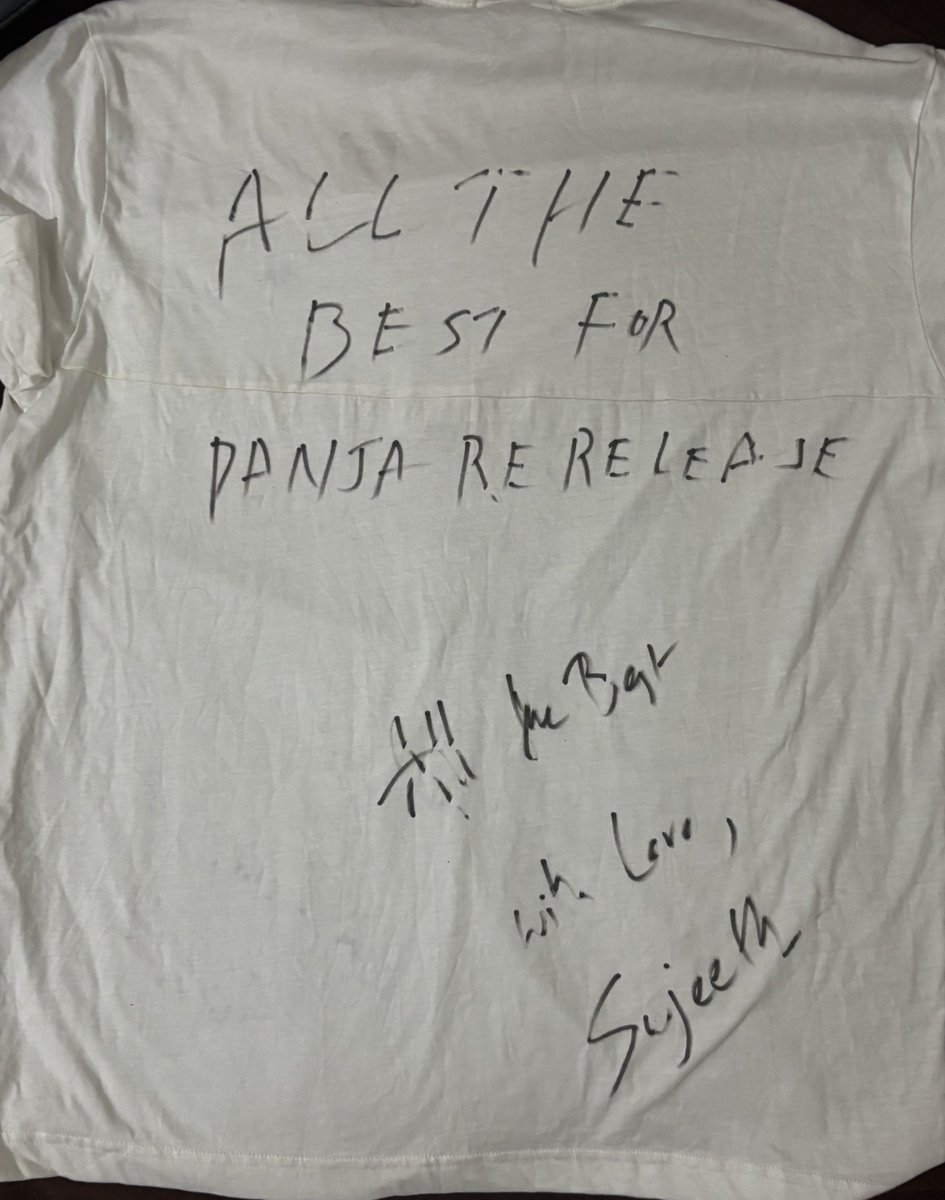 ALL THE
BEST FOR
PANJA RE RELEASE
All the Best
with Love,
Sujeeth